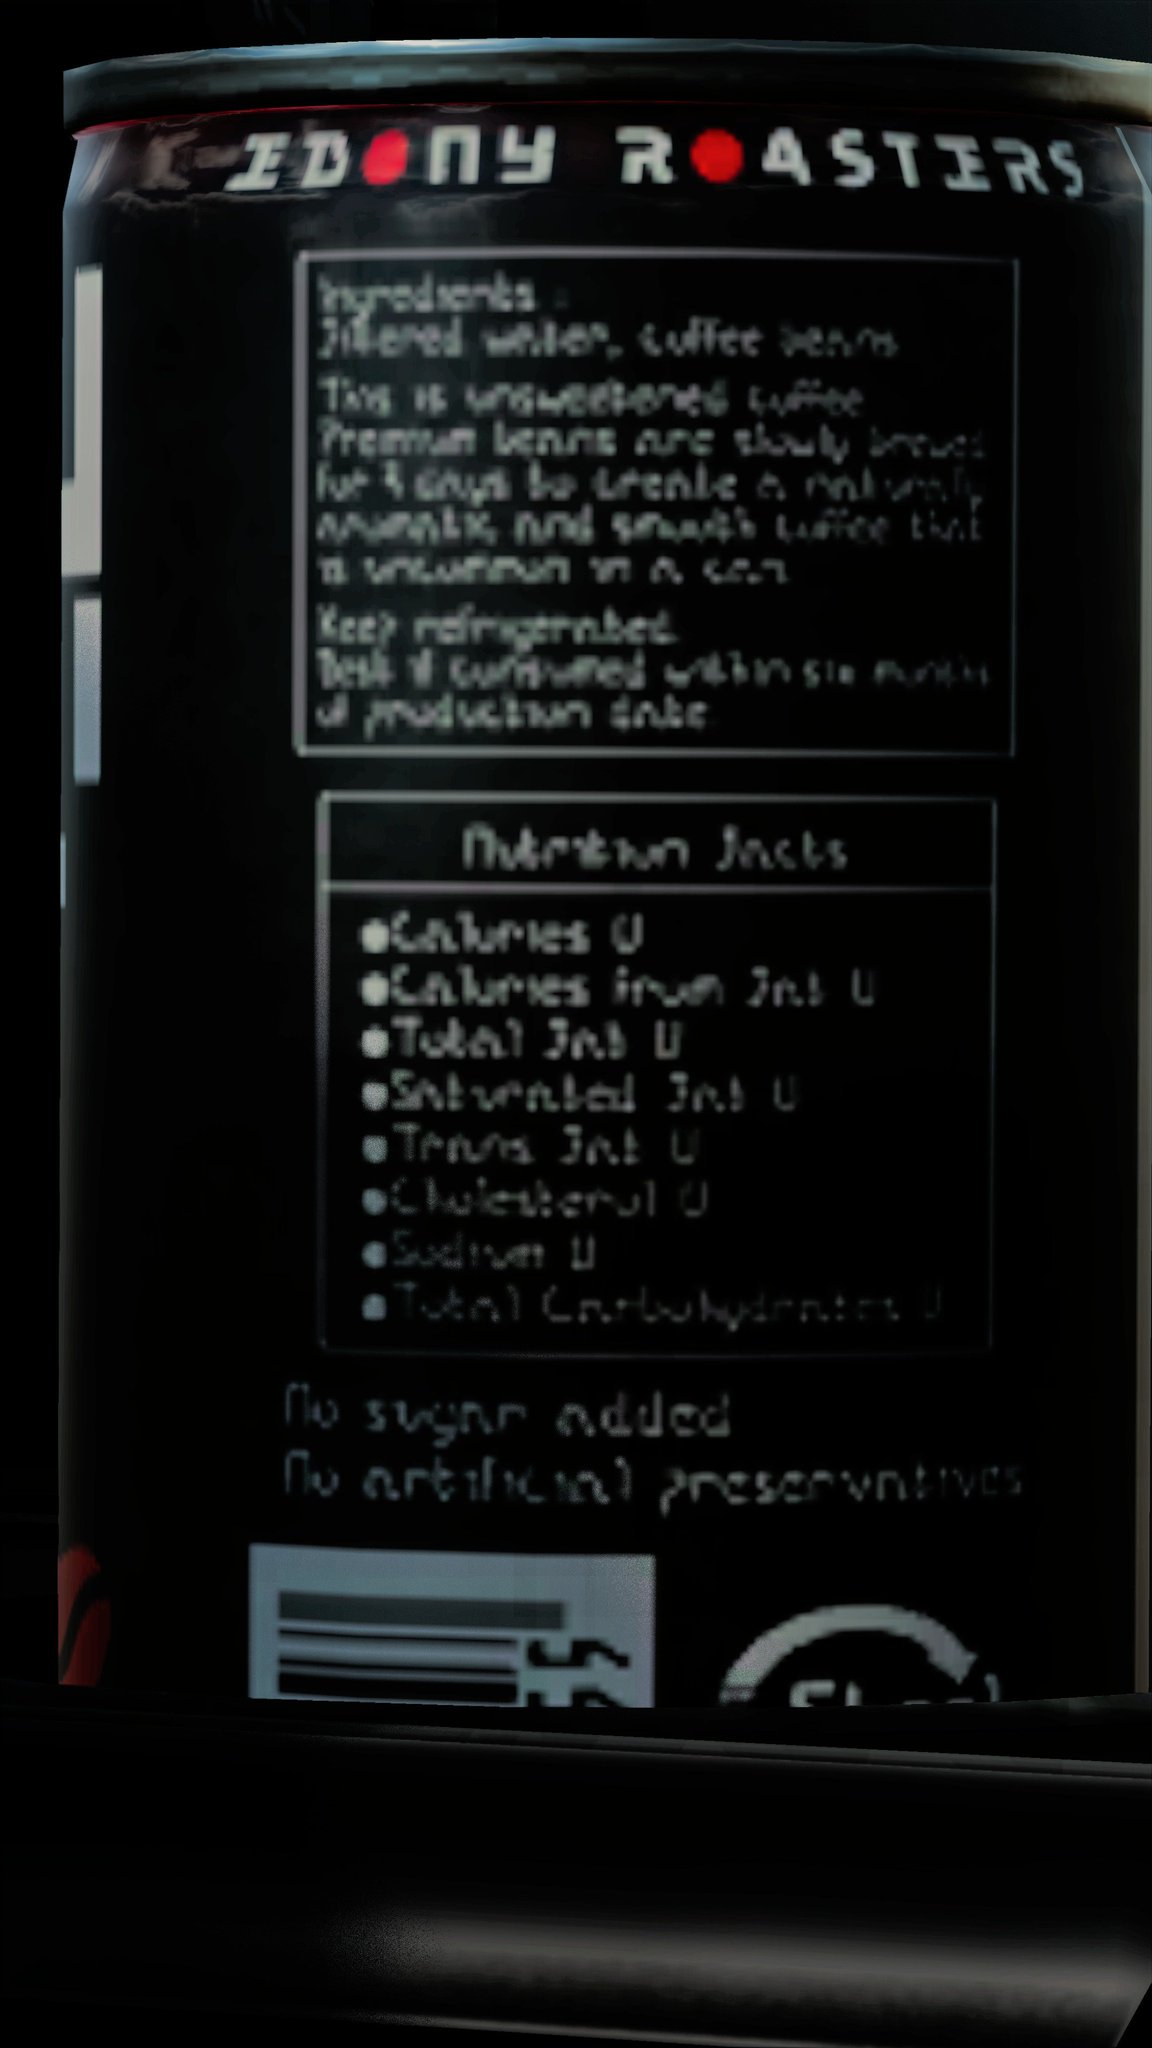 EBONY ROASTERS
Ingredients :
Filtered water, coffee beans
This is unsweetened coffee
Premium beans are slowly brewed
for 3 days to create a naturally
aromatic and smooth coffee that
is uncommon in a can
Keep refrigerated.
Best if consumed within six months
of production date
Nutrition Facts
●Calories 0
●Calories from Fat 0
●Total Fat 0
●Saturated Fat 0
●Trans Fat 0
●Cholesterol 0
●Sodium 0
●Total Carbohydrates 0
No sugar added
No artificial preservatives